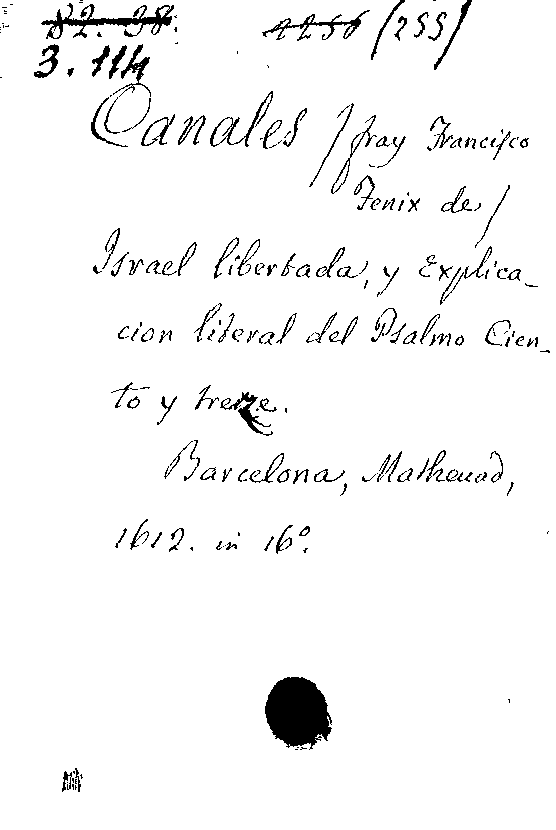 82. 38. 4256 (255)
3. 114
Canales / fray Francisco
Fenix de /
Israel libertada, y Explica_
cion literal del Psalmo Cien_
to y treze.
Barcelona, Mathevad,
1612. in 16º.